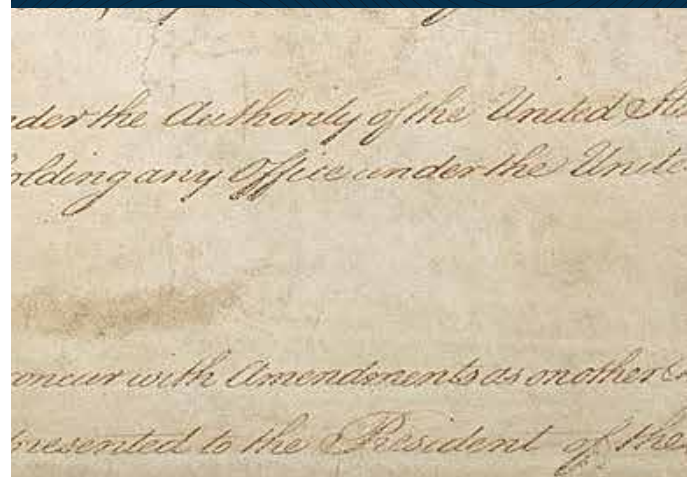 nder the Authority of the United Sta
olding any Office under the Unite
oncur with Amendments as on other
presented to the President of the